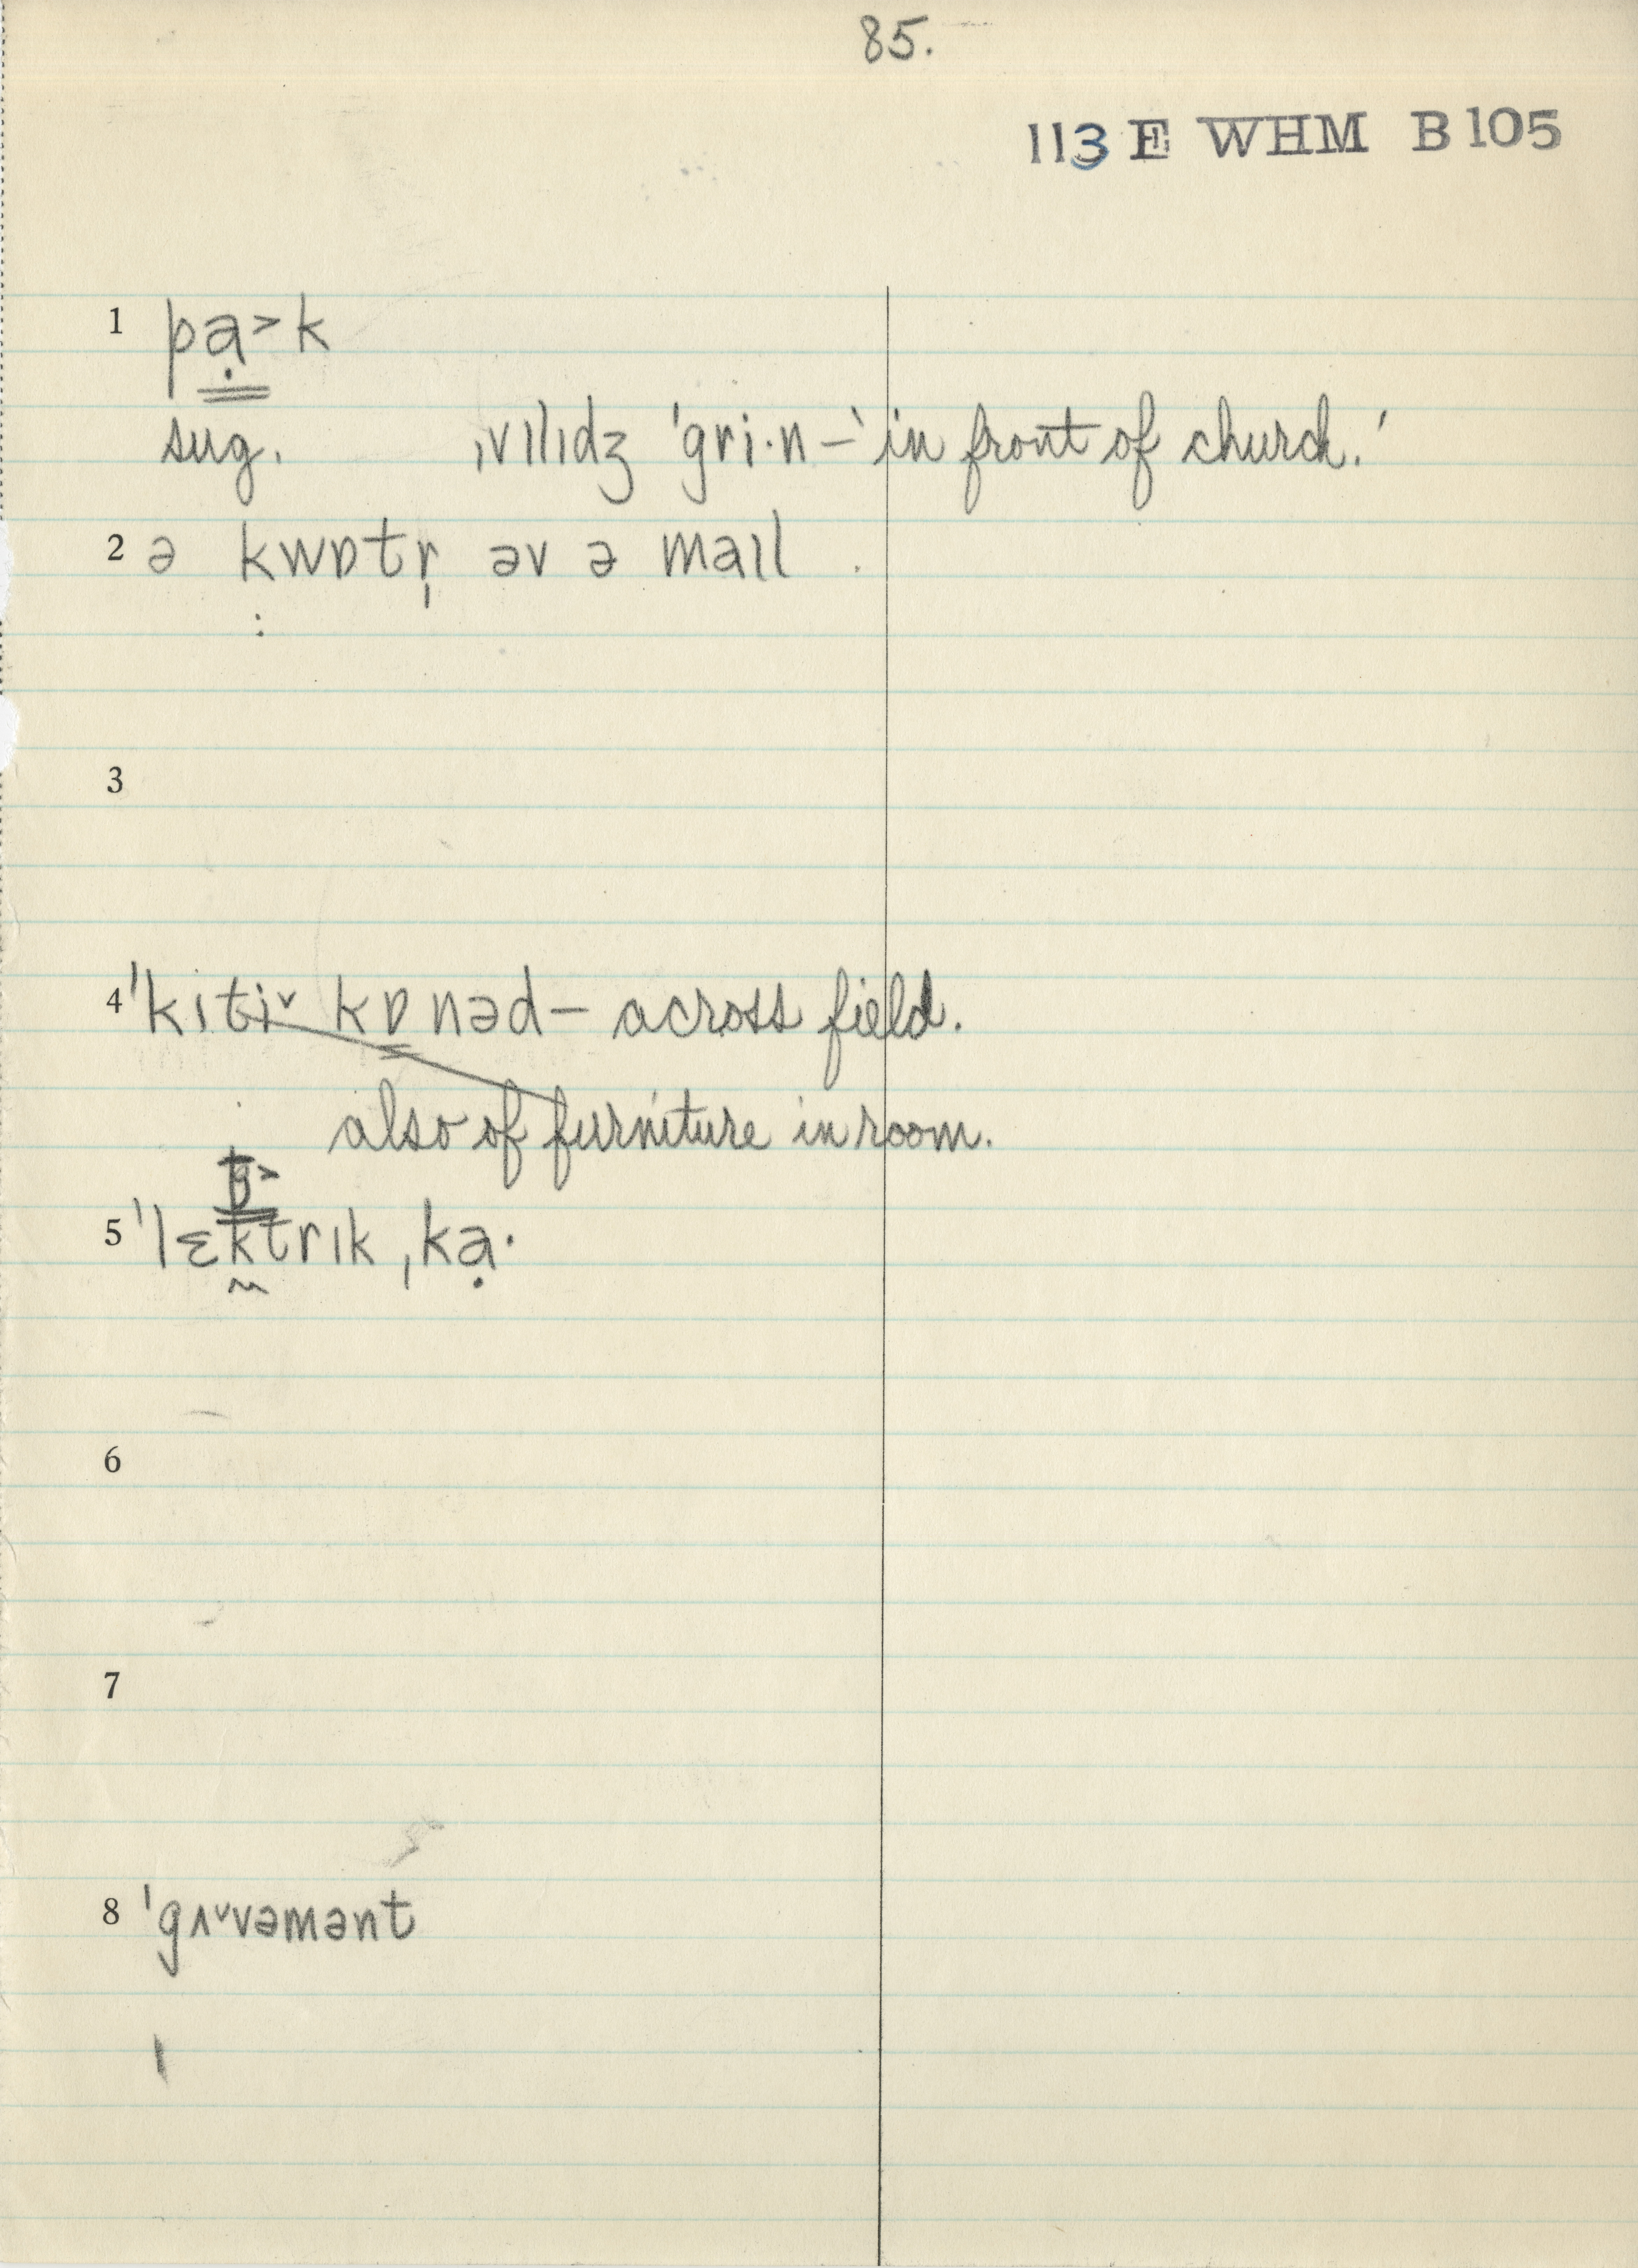 85.
113 E WHM B105
1 pạ˃k
sug. ˌvɪlɪdʒ ˈgri·n – ‘in front of church.’
2 ə kwɒtr̩ əv ə maɪl
3
4 ˈkɪtiˇ kɒnəd – across field.
also of furniture in room.
5 ˈlɛktrɪk ˌkạ·
6
7
8 ˈgʌˇvəmənt